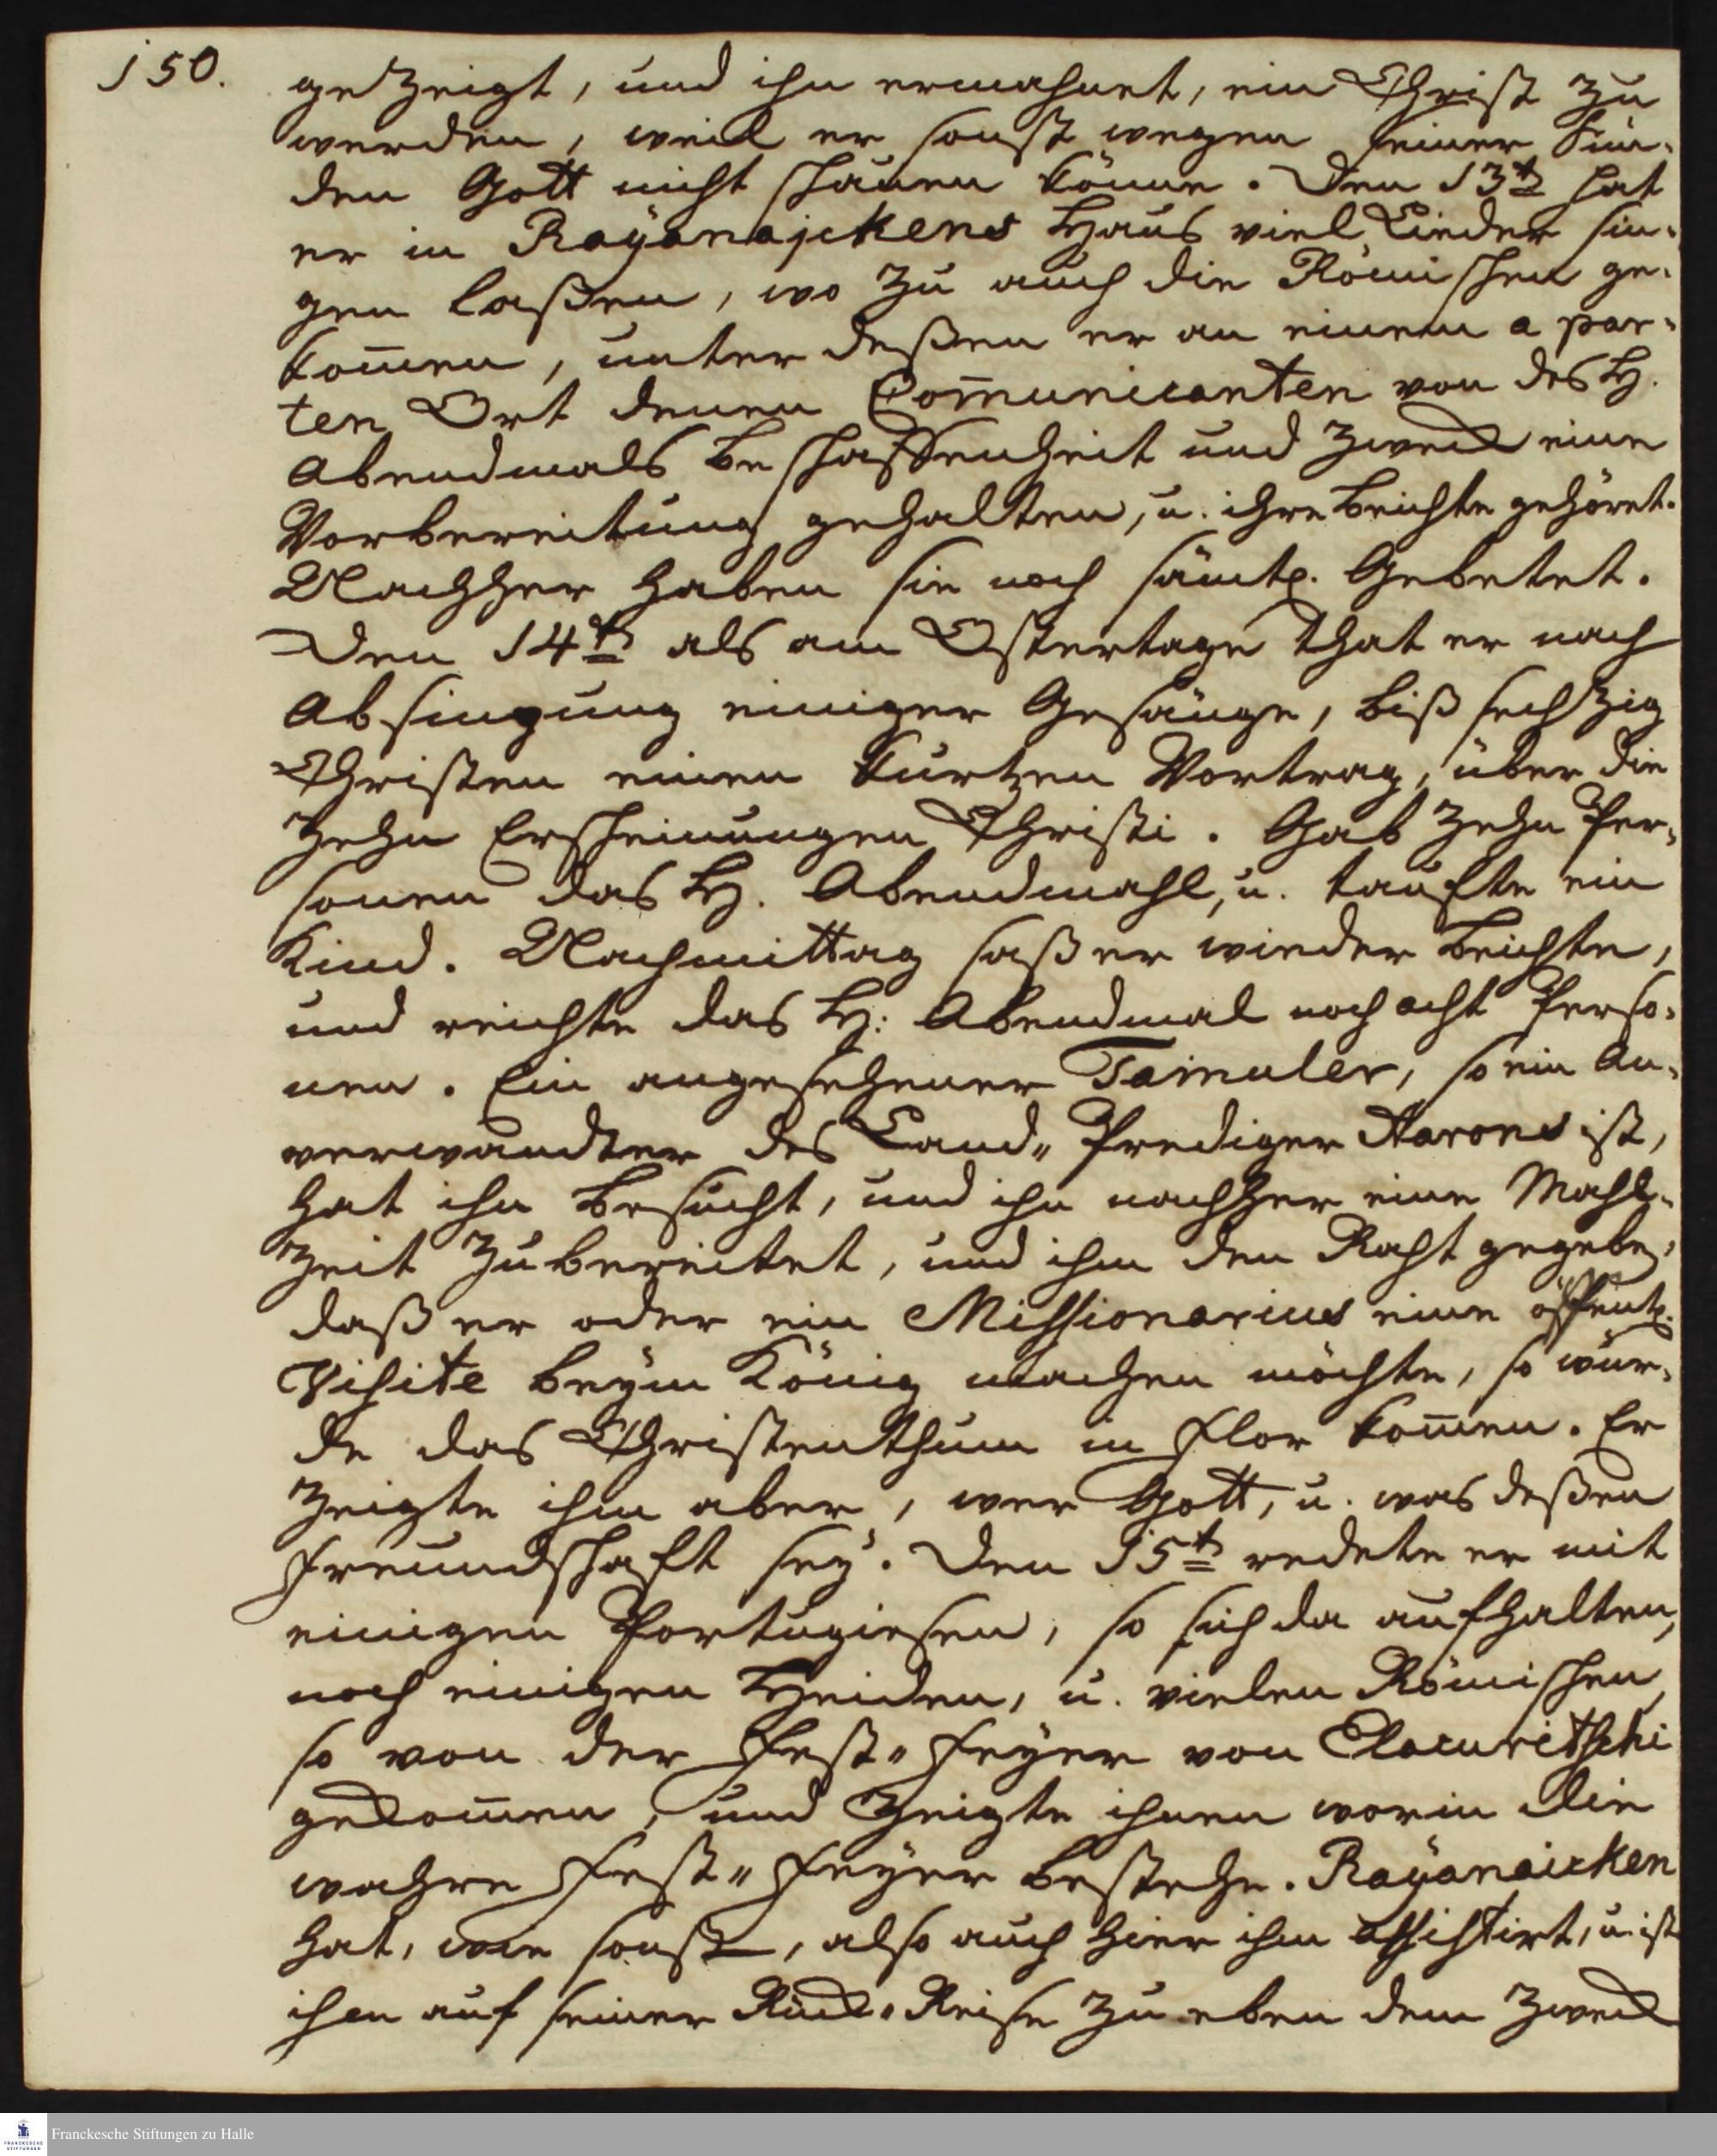 150.
gezeigt, und ihn ermahnet, ein Christ zu
werden, weil er sonst wegen seiner Sün-
den Gott nicht schauen könne. Den 13t hat
er in Rayanajckens Haus viel Lieder sin-
gen laßen, wo zu auch die Römischen ge-
kom̄en, unter deßen er an einem a par-
ten Ort denen Com̄unicanten von des H.
Abendmals Beschaffenheit und Zweck eine
Vorbereitung gehalten, u. ihre Beichte gehöret.
Nachher haben sie noch sämtl. Gebetet.
Den 14t als am Ostertage that er nach
Absingung einiger Gesänge, biß sechzig
Christen einen kurtzen Vortrag, über die
zehn Erscheinungen Christi. Gab zehn Per-
sonen das H. Abendmahl, u. taufte ein
Kind. Nachmittag saß er wieder Beichte,
und reichte das H: Abendmal noch acht Perso-
nen. Ein angesehener Tamuler, so ein An-
verwandter des Land„ Prediger Aarons ist,
hat ihn besucht, und ihn nachher eine Mahl-
zeit zubereitet, und ihm den Raht gegeben,
daß er oder ein Missionarius eine öffentl.
Visite beym König machen möchte, so wür-
de das Christenthum in Flor kom̄en. Er
zeigte ihm aber, wer Gott, u. was deßen
Freundschaft sey. Den 15t redete er mit
einigen Portugiesen, so sich da aufhalten,
noch einigen Heiden, u. vielen Römischen,
so von der Fest„ Feyer von Elacuritschi
gekom̄en, und zeigte ihnen worin die
wahre Fest„ Feyer bestehe. Rayanaicken
hat, wie sonst, also auch hier ihm assistirt, u. ist
ihm auf seiner Rück„ Reise zu eben dem Zweck
Franckesche Stiftungen zu Halle